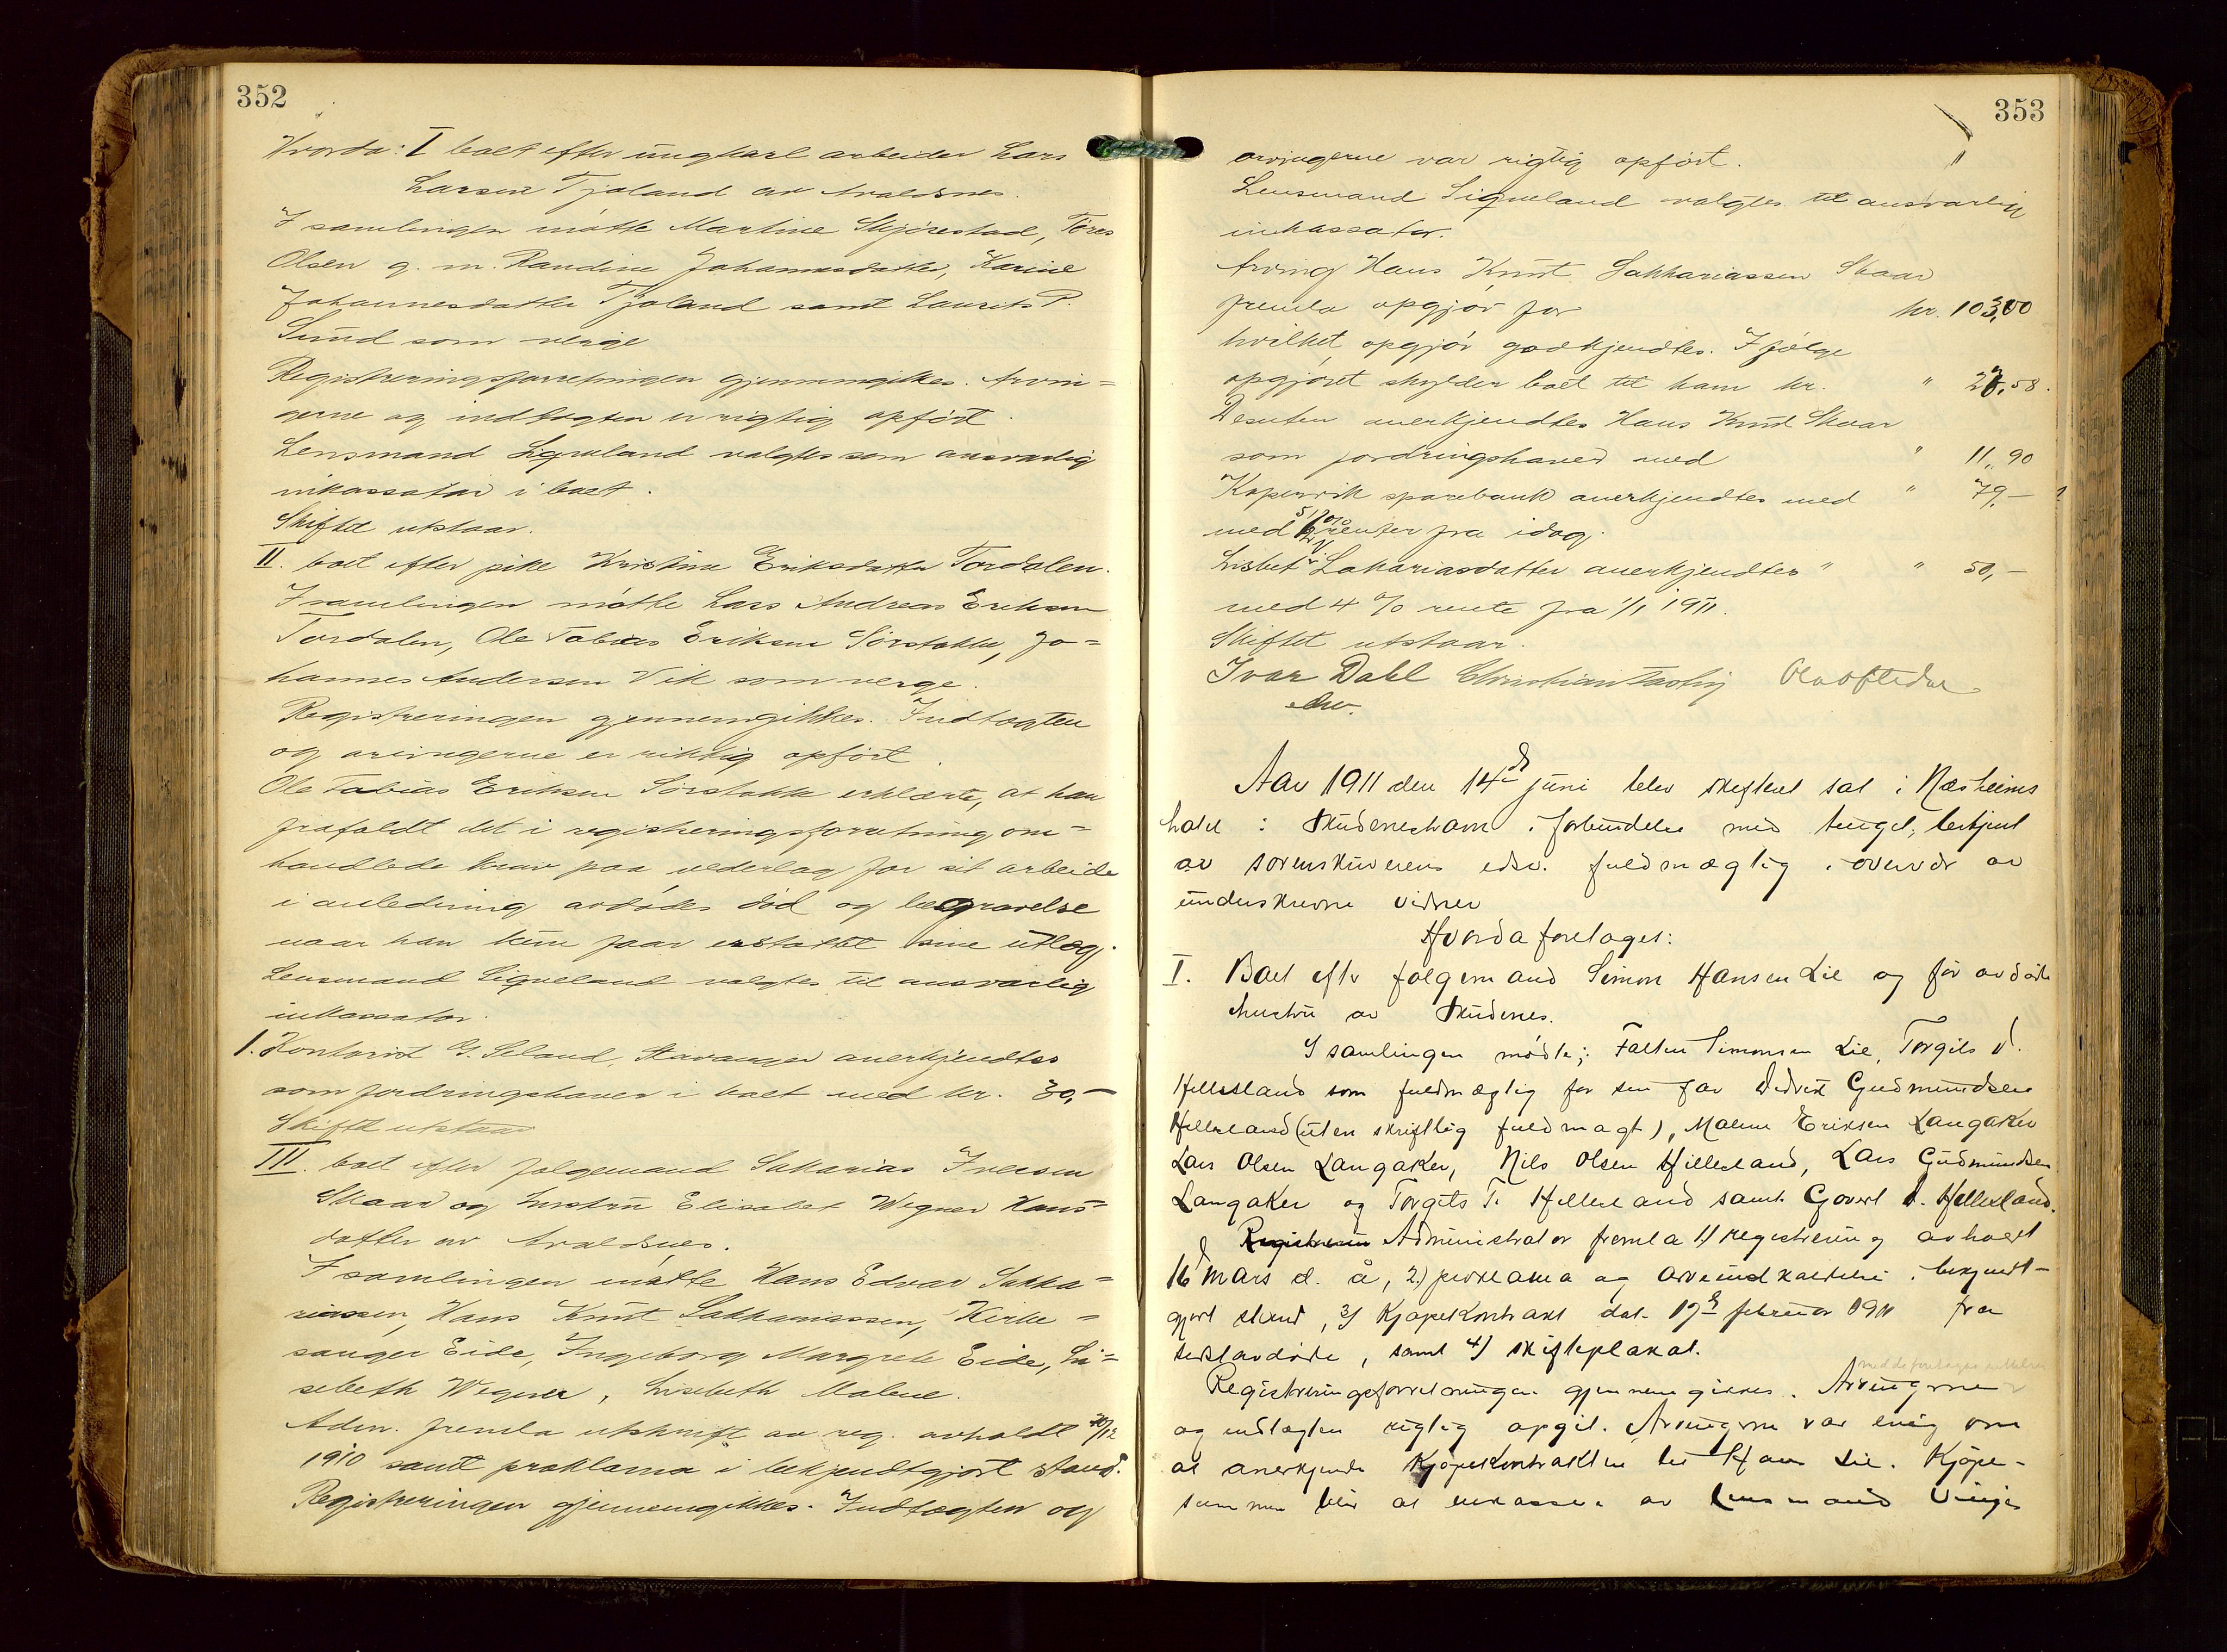 352
Hvorda: I boet efter ungkarl arbeider Lars
Larsen Tjoland av Avaldsnes.
I samlingen møtte Martine Stjørestad, Tøres
Olsen g. m. Randine Johannesdatter, Karine
Johannesdatter Tjoland samt Laurits P.
Sund som verge
Registreringsforretningen gjennemgikkes. Arvin=
gerne og indtægten er rigtig opført.
Lensmand Sigveland valgtes som ansvarlig
inkassator i boet.
Skiftet utstaar.
II. boet efter pike Kristine Eriksdatter Tordalen.
I samlingen møtte Lars Andreas Eriksen
Tordalen, Ole Tobias Eriksen Sørstokke, Jo=
hannes Andersen Vik som verge.
Registreringen gjennemgikkes. Indtægten
og arvingerne er riktig opført.
Ole Tobias Eriksen Sørstokke erklærte, at han
frafaldt det i registreringsforretning om=
handlede krav paa vederlag for sit arbeide
i anledning avdødes død og begravelse
naar han kun faar erstattet sine utlæg.
Lensmand Sigveland valgtes til ansvarlig
inkassator.
1. Kontorist G. Seland, Stavanger anerkjendtes
som fordringshaver i boet med kr. 30,-
Skiftet utstaar
III. boet efter folgemand Sakarias Iversen
Skaar og hustru Elisabet Wegner Hans=
datter av Avaldsnes.
I samlingen møtte Hans Edvar Sakka=
riassen, Hans Knut Sakkariassen, Kirke=
sanger Eide, Ingeborg Margrete Eide, Li=
sebeth Wegner, Lisebeth Malene.
Adm. fremla utskrift av reg. avholdt 20/12
1910 samt proklama i bekjendtgjort stand.
Registreringen gjennemgikkes. Indtægten og
353
arvingerne var rigtig opført.
Lensmand Sigveland valgtes til ansvarlig
inkassator.
Arving Hans Knut Sakkariassen Skaar
fremla opgjør for kr. 103,00
hvilket opgjør godkjendtes. Ifølge
opgjøret skylder boet til ham kr. " 28,58.
Desuten anerkjendtes Hans Knut Skaar
som fordringshaver med " 11,90
Kopervik sparebank anerkjendtes med " 79,-
med renter fra idag.
Lisbet Sakariasdatter anerkjendtes " " 50,-
med 4 % rente fra 1/1 1911.
Skiftet utstaar.
Ivar Dahl Christian Tastig Olav Oftedal
edsv.
Aar 1911 den 14de juni blev skifteret sat i Næsheims
hotel i Skudeneshavn i forbindelse med tinget, betjent
av sorenskriverens edsv. fuldmægtig i overvær av
underskrevne vidner
Hvorda foretoges:
I. Boet eftr folgemand Simon Hansen Lie og før avdøde
hustru av Skudenes.
I samlingen mødte: Falten Simonsen Lie, Torgils V.
Hillesland som fuldmægtig for sin far Vidrik Gudmundsen
Hillesland (uten skriftlig fuldmagt), Malene Eriksen Langaker
Lars Olsen Langaker, Nils Olsen Hillesland, Lars Gudmundsen
Langaker og Torgils T. Hillesland samt Govert V. Hillesland.
Administrator fremla 1/ registrering avholdt
16 mars d. å, 2/ proklama og arveindkaldelse i bekjendt-
gjort stand, 3/ Kjøpekontrakt dat. 17de februar 1911 fra
sidstavdøde, samt 4/ skifteplakat.
Registreringsforretningen gjennemgikkes. Arvingerne
og indtægten rigtig opgit. Arvingerne var enig om
at anerkjende Kjøpekontrakten til Hans Lie. Kjøpe-
summen blir at inkassere av Lensmand Vinje